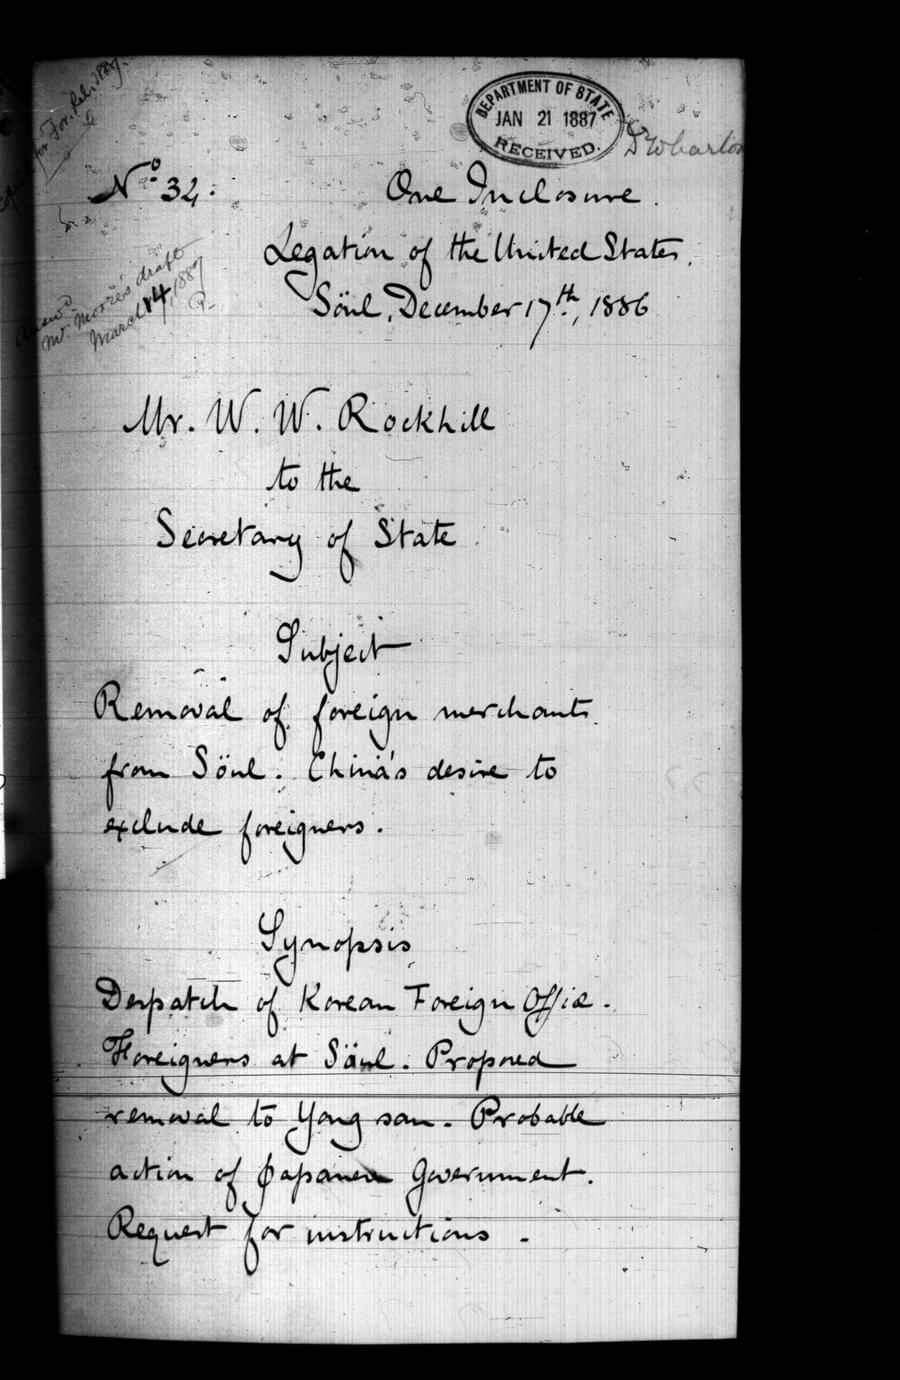 for For. Rel. 1887.
DEPARTMENT OF STATE
JAN 21 1887
RECEIVED.
Wharton
No. 32. One Inclosure.
Legation of the United States,
Söul, December 17th, 1886
Mr. Moore's draft
March 14, 1887
R.
Mr. W. W. Rockhill
to the
Secretary of State
Subject
Removal of foreign merchants
from Söul. China's desire to
exclude foreigners.
Synopsis
Despatch of Korean Foreign Office.
Foreigners at Söul. Proposed
removal to Yong san. Probable
action of Japanese Government.
Request for instructions.